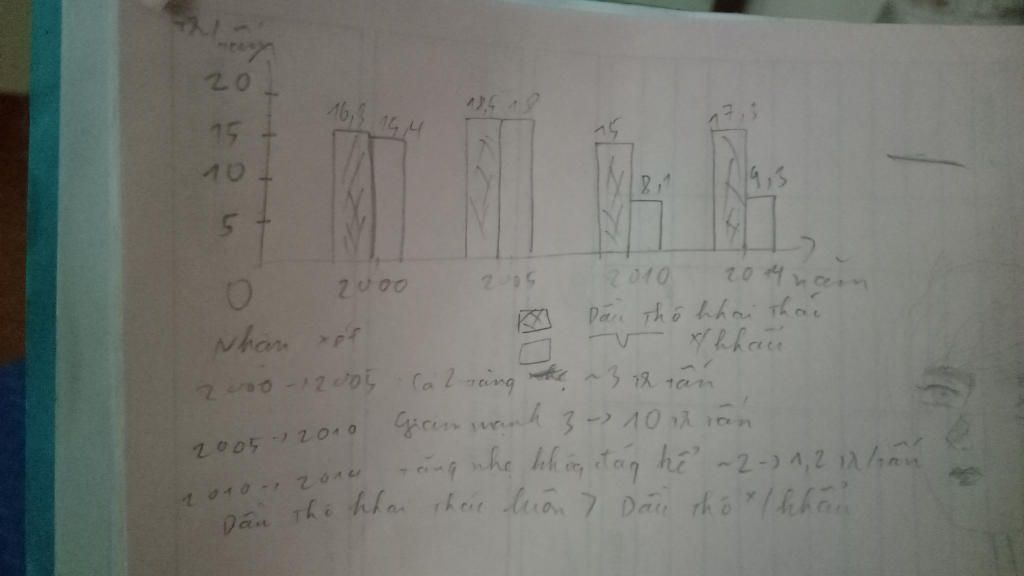 20
15
10
5
0
16,3 15,4
18,5 18
15 8,1
17,3 9,3
2000 2005 2010 2014 năm
Dầu thô khai thác
x/khẩu
Nhận xét
2000 → 2005 cả 2 tăng ~3 tấn
2005 → 2010 Giảm mạnh 3 → 10 tấn
2010 → 2014 tăng nhẹ kể ~2 → 1,2 /tấn
Dầu thô khai thác luôn > Dầu thô x/khẩu